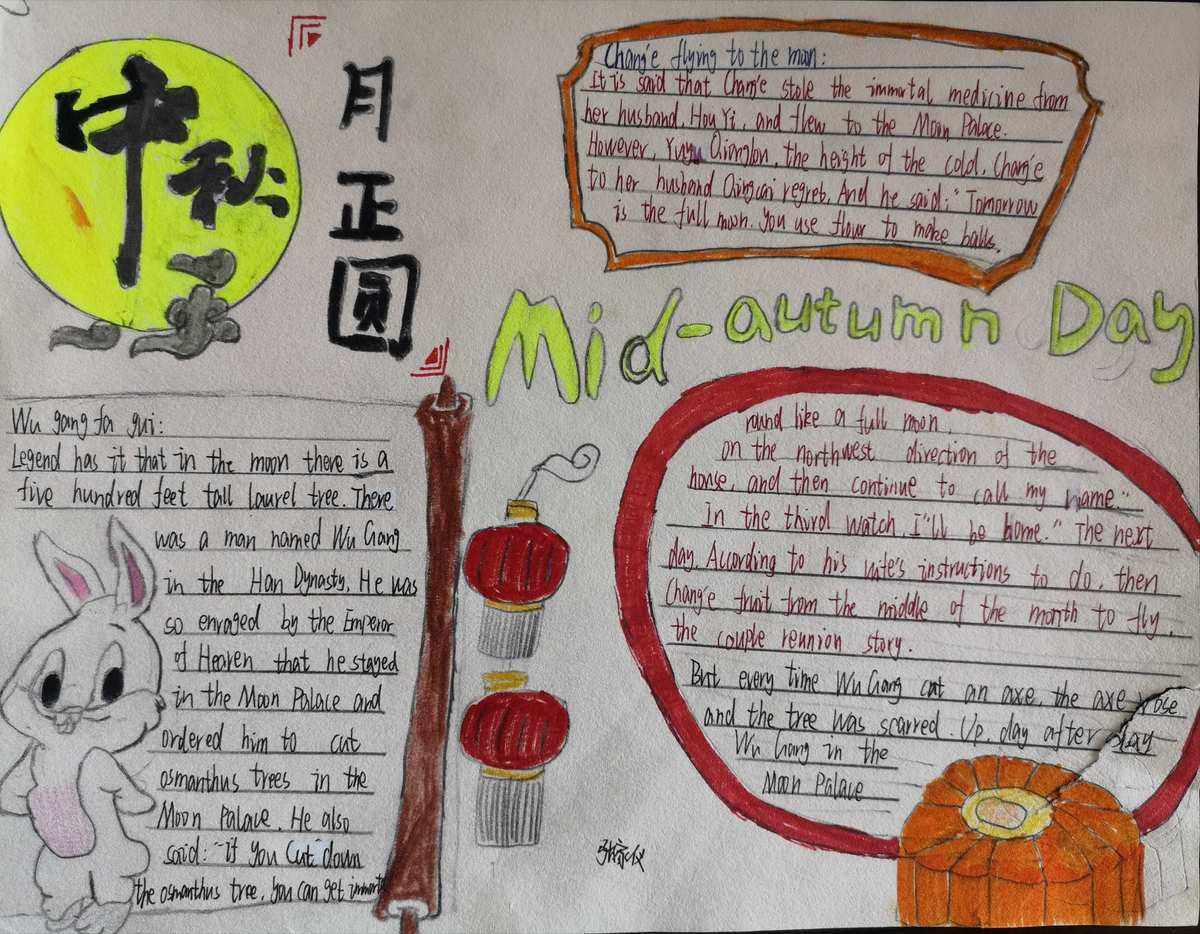 中秋
月正圆
Chang'e flying to the moon:
It is said that Chang'e stole the immortal medicine from
her husband, Hou Yi, and flew to the Moon Palace.
However, Yuyu Qionglou, the height of the cold, Chang'e
to her husband Qingcai regret, And he said: "Tomorrow
is the full moon. You use flour to make balls,
Mid-autumn Day
round like a full moon,
on the northwest direction of the
house, and then continue to call my name."
In the third watch, I"ll be home." The next
day. According to his wife's instructions to do, then
Chang'e fruit from the middle of the month to fly,
the couple reunion story.
But every time Wu Gang cut an axe, the axe rose
and the tree was scarred. Up, day after day
Wu Gang in the
Moon Palace
Wu gang fa gui:
Legend has it that in the moon there is a
five hundred feet tall laurel tree. There
was a man named Wu Gang
in the Han Dynasty, He was
so enraged by the Emperor
of Heaven that he stayed
in the Moon Palace and
ordered him to cut
osmanthus trees in the
Moon Palace. He also
said: "if you cut down
the osmanthus tree, you can get immort